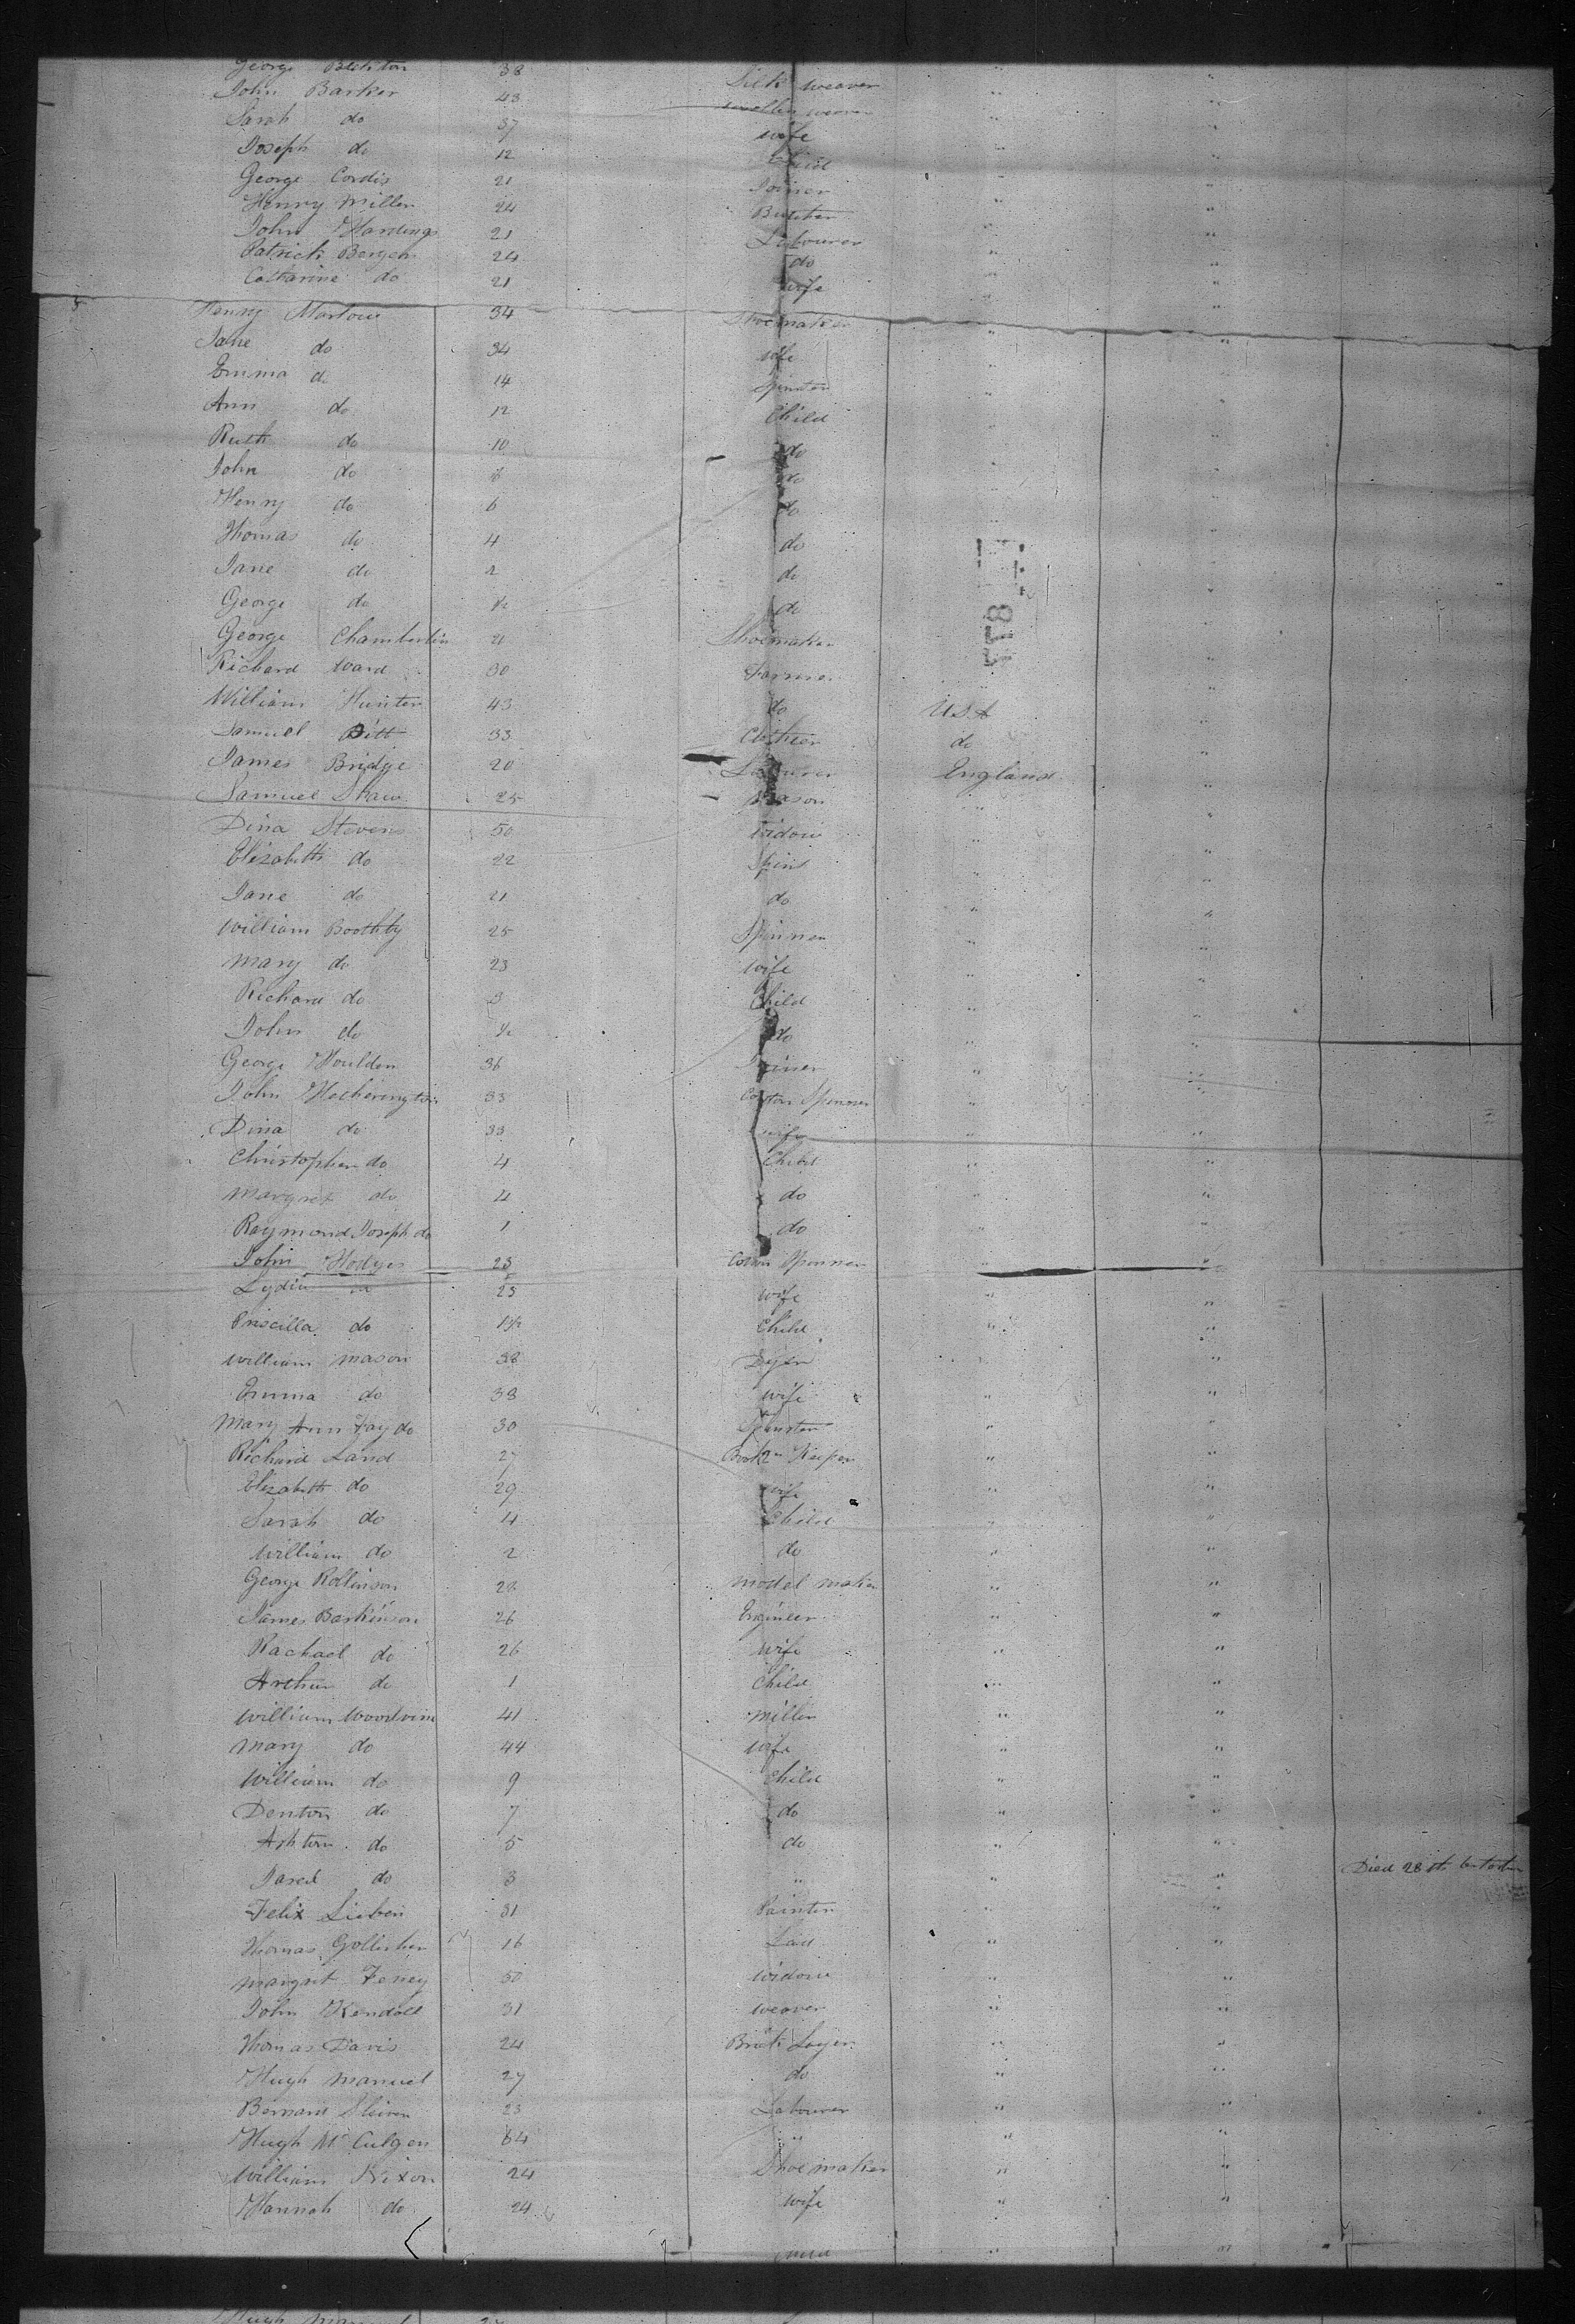 George 38 Silk weaver " "
John Barker 43 weaver " "
Sarah do 37 wife " "
Joseph do 12 Child " "
George Cordis 21 Joiner " "
Henry Miller 24 Butcher " "
John Hardings 21 Labourer " "
Patrick Bergen 24 do " "
Catharine do 21 wife " "
Henry Marlow 34 Shoemaker " "
Jane do 34 wife " "
Emma do 14 Spinster " "
Ann do 12 Child " "
Ruth do 10 do " "
John do 8 do " "
Henry do 6 do " "
Thomas do 4 do "
Jane do 2 do "
George do 1/2 do "
George Chamberlin 21 Shoemaker "
Richard Ward 30 Farmer " "
William Hunter 43 do USA "
Samuel Pitt 33 Clothier do "
James Bridge 20 Labourer England "
Samuel Shaw 25 Mason " "
Dina Stevens 50 Widow " "
Elizabeth do 22 Spins " "
Jane do 21 do " "
William Boothby 25 Spinner " "
Mary do 23 wife " "
Richard do 3 Child " "
John do 1/2 do " "
George Houlden 36 Joiner " "
John Hetherington 33 Cotton Spinner " "
Dina do 33 wife " "
Christopher do 4 Child " "
Margret do 4 do " "
Raymond Joseph do 1 do " "
John Hodges 25 Cotton Spinner " "
Lydia do 25 wife " "
Priscilla do 1 1/2 Child " "
William Mason 38 Dyer " "
Emma do 38 wife " "
Mary Ann Fay do 30 Spinster " "
Richard Land 27 Book Keeper " "
Elizabeth do 29 wife " "
Sarah do 4 Child " "
William do 2 do " "
George Rollinson 28 model maker " "
James Barkinson 26 Engineer " "
Rachael do 26 wife " "
Arthur do 1 Child " "
William Woodvine 41 Miller " "
Mary do 44 wife " "
William do 9 Child " "
Denton do 7 do " "
Ashton do 5 do " "
Jared do 3 " " " Died 28th
Felix Lieben 31 Painter " "
Thomas 16 Lad " "
Margret Feney 50 widow " "
John Kendall 31 weaver " "
Thomas Davis 24 Brick Layer " "
Hugh Manuel 27 do " "
Bernard 23 Labourer " "
Hugh McCulgen 64 " " "
William Nixon 24 Shoemaker " "
Hannah do 24 wife " "
Child " "
Hugh 27